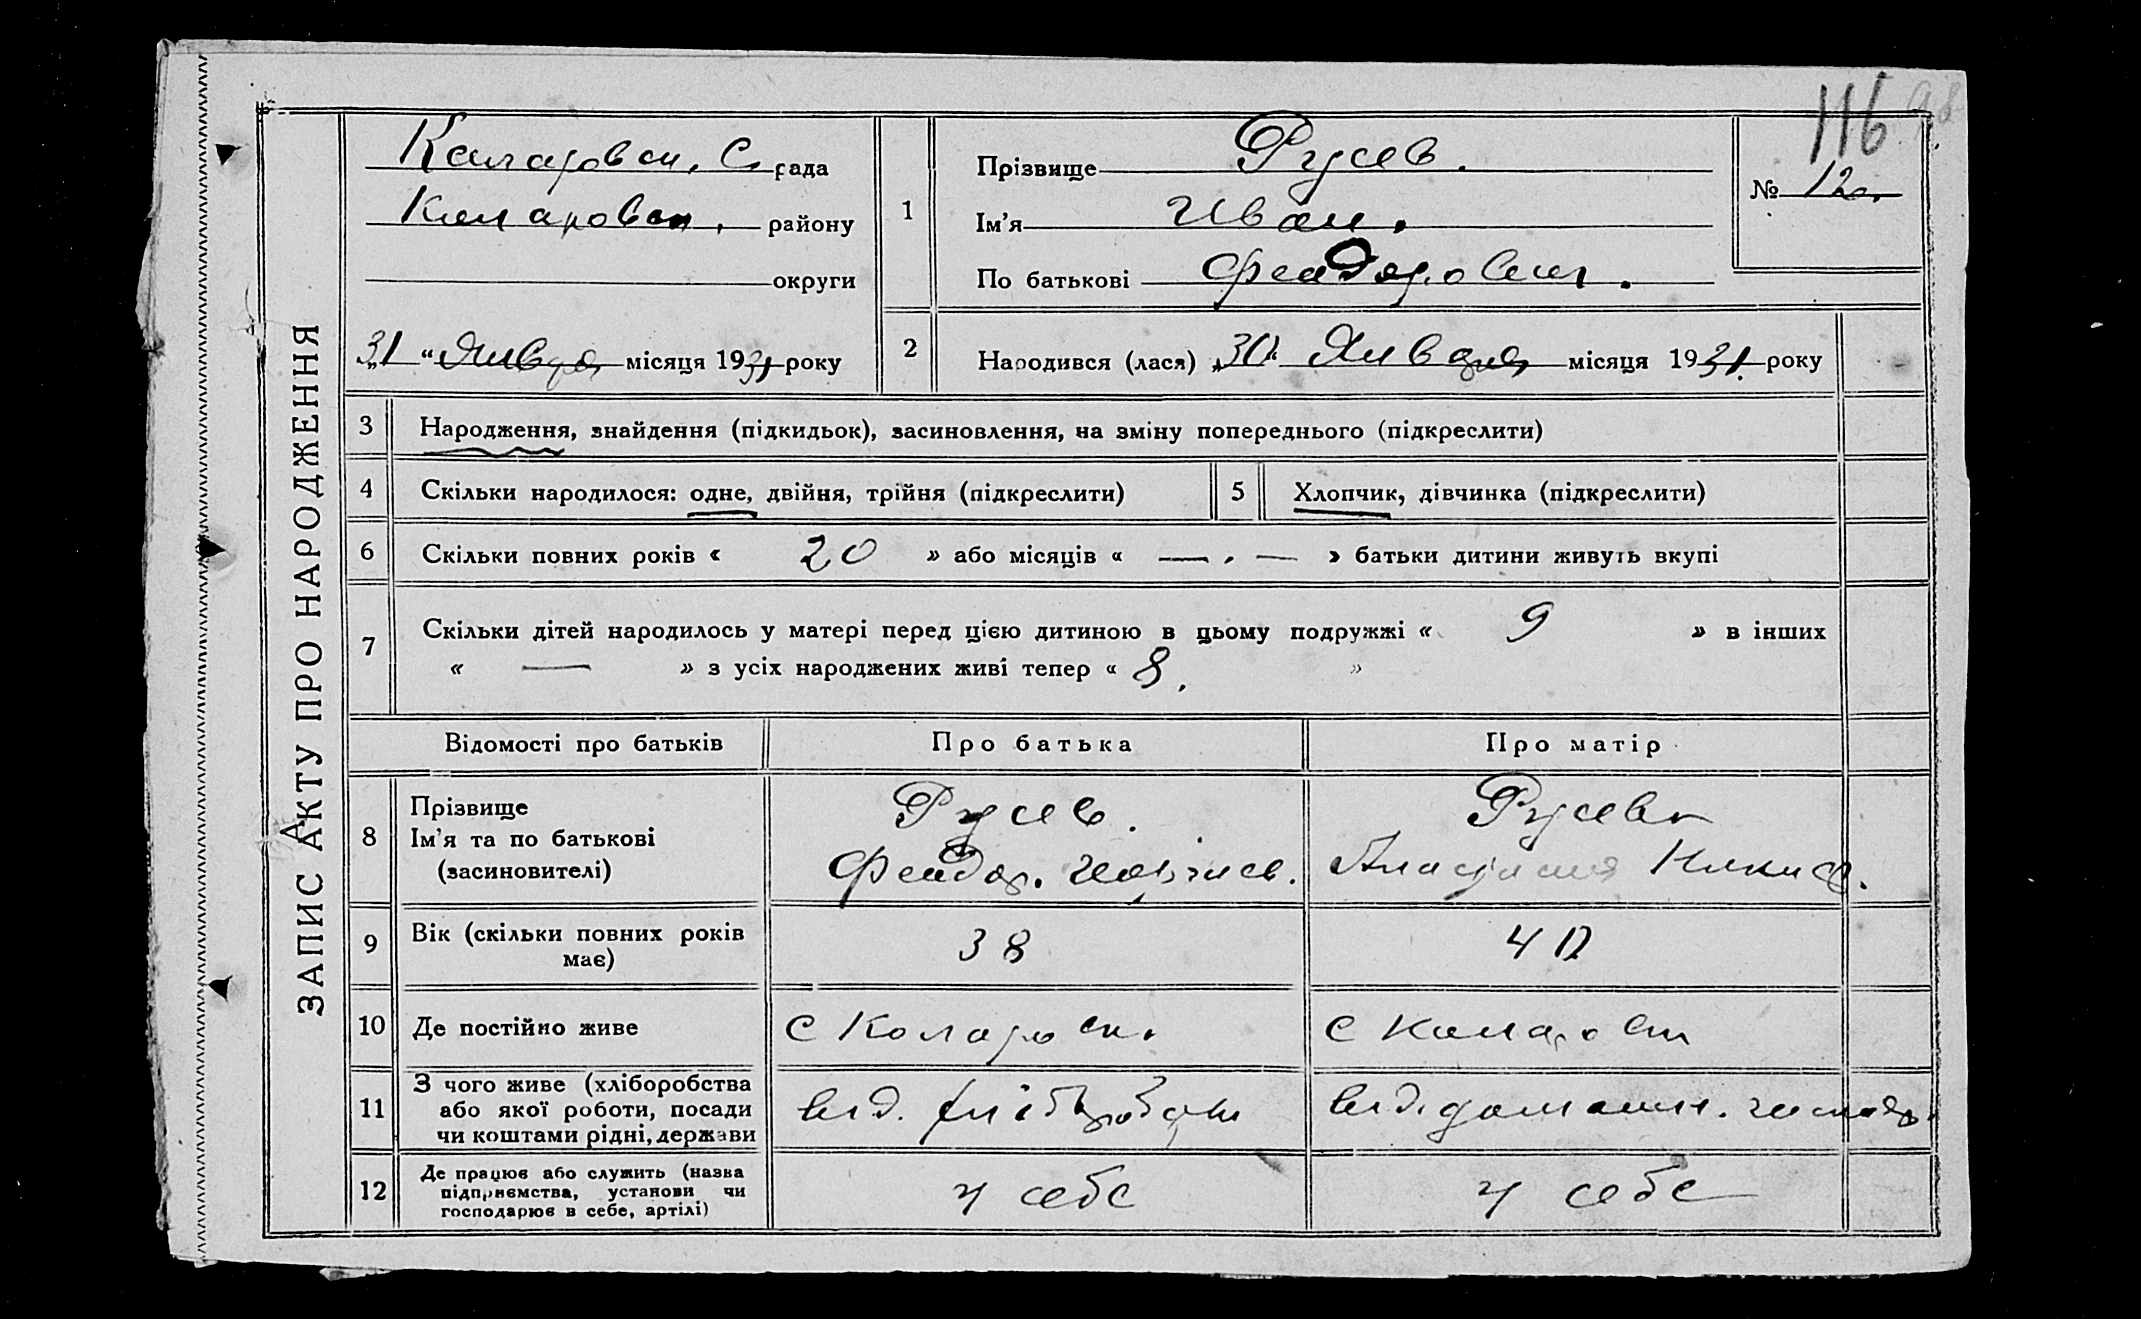 116 98
ЗАПИС АКТУ ПРО НАРОДЖЕННЯ
Каларовск. С. рада
Каларовск. району
округи
„31“ Января місяця 1931 року
1
Прізвище Русев.
Ім’я Иван.
По батькові Феодорович.
№ 12.
2
Народився (лася) „30“ Января місяця 1931. року
3 Народження, знайдення (підкидьок), засиновлення, на зміну попереднього (підкреслити)
4 Скільки народилося: одне, двійня, трійня (підкреслити) 5 Хлопчик, дівчинка (підкреслити)
6 Скільки повних років « 20 » або місяців « — . — » батьки дитини живуть вкупі
7 Скільки дітей народилось у матері перед цією дитиною в цьому подружжі « 9 » в інших
« — » з усіх народжених живі тепер « 8. »
Відомості про батьків Про батька Про матір
8 Прізвище Русев. Русева
Ім’я та по батькові Феодор. Георгиев. Анастасия
(засновителі)
9 Вік (скільки повних років має) 38 40
10 Де постійно живе с Коларовк. с Каларовк
11 З чого живе (хліборобства
або якої роботи, посади від. хліборобства від. домашн. господ.
чи коштами рідні, держави
12 Де працює або служить (назва
підприємства, установи чи у себе у себе
господарює в себе, артілі)